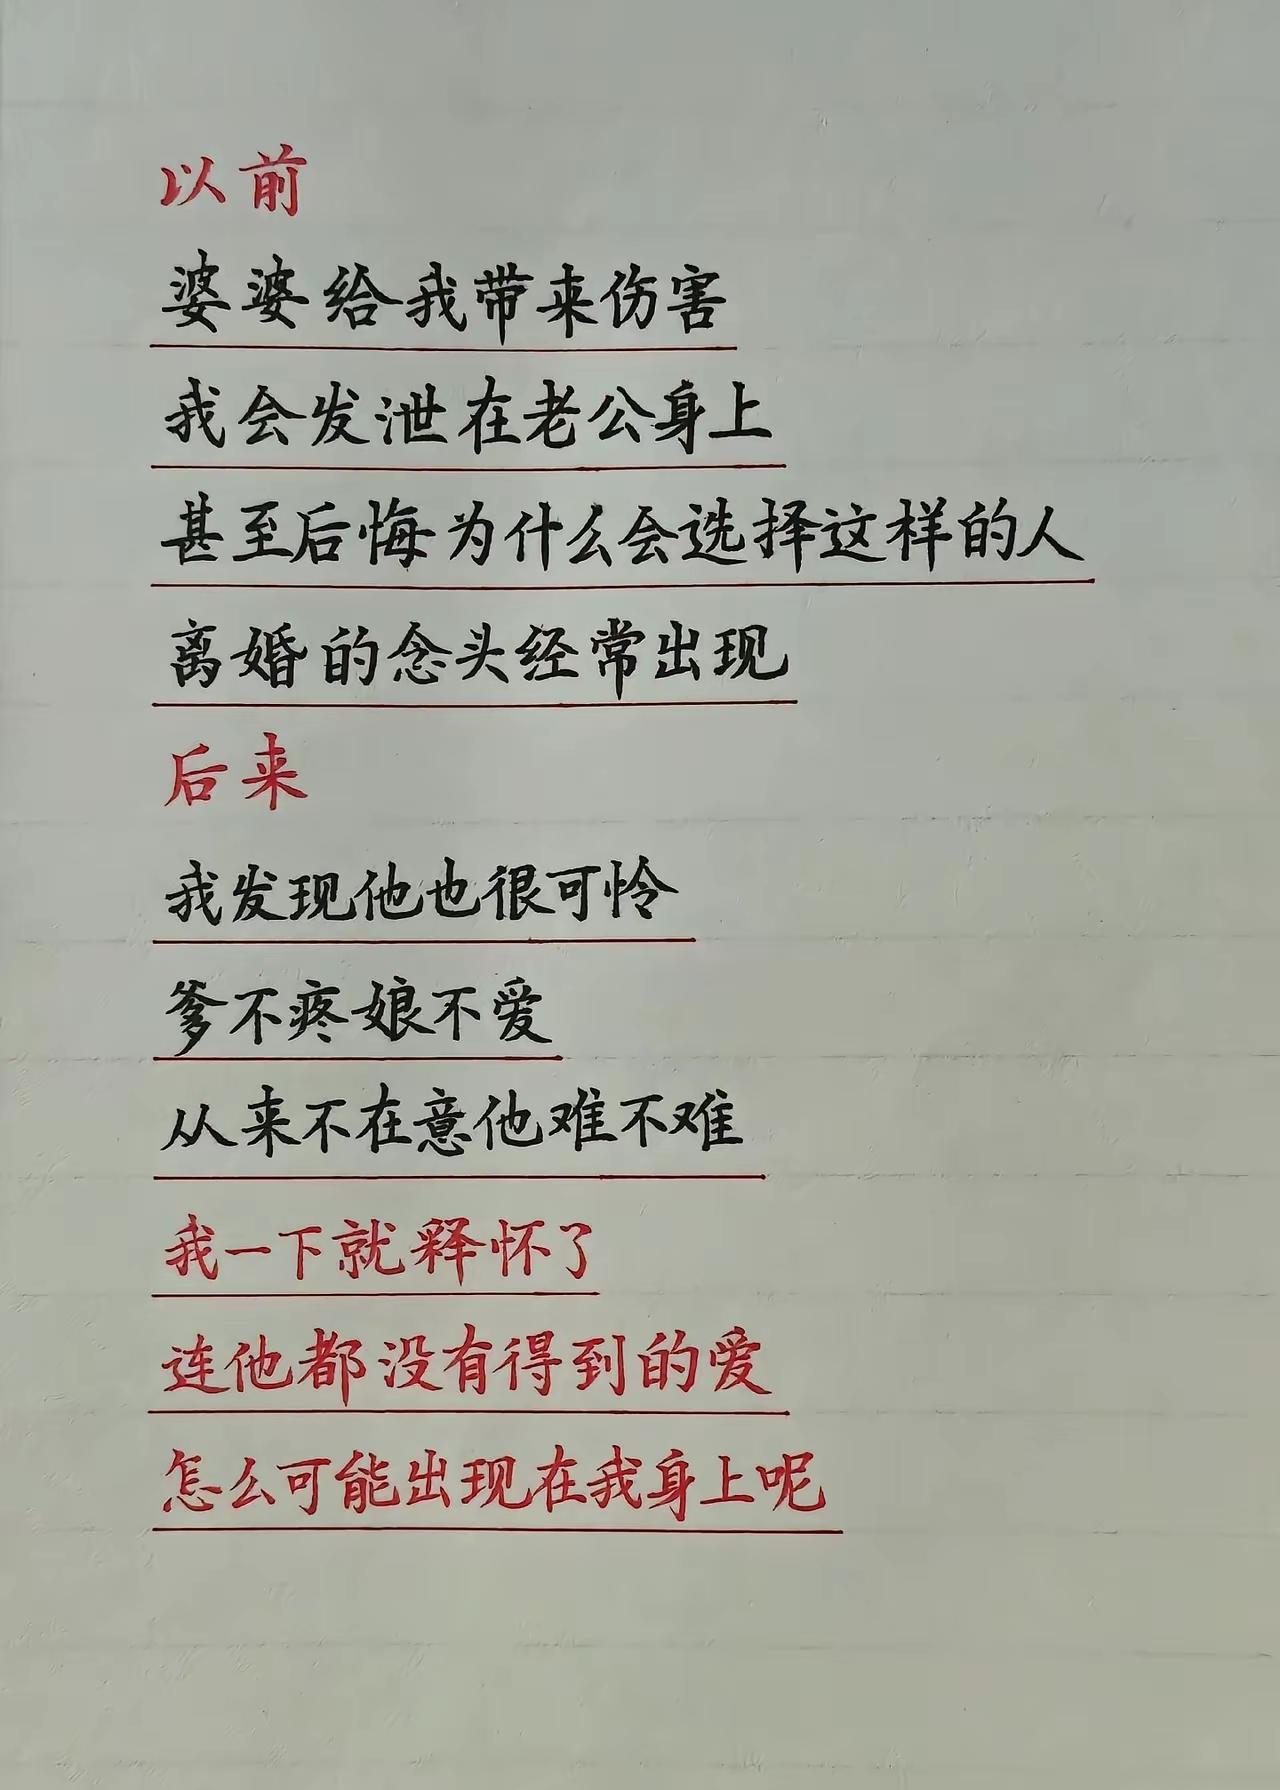 以前
婆婆给我带来伤害
我会发泄在老公身上
甚至后悔为什么会选择这样的人
离婚的念头经常出现
后来
我发现他也很可怜
爹不疼娘不爱
从来不在意他难不难
我一下就释怀了
连他都没有得到的爱
怎么可能出现在我身上呢